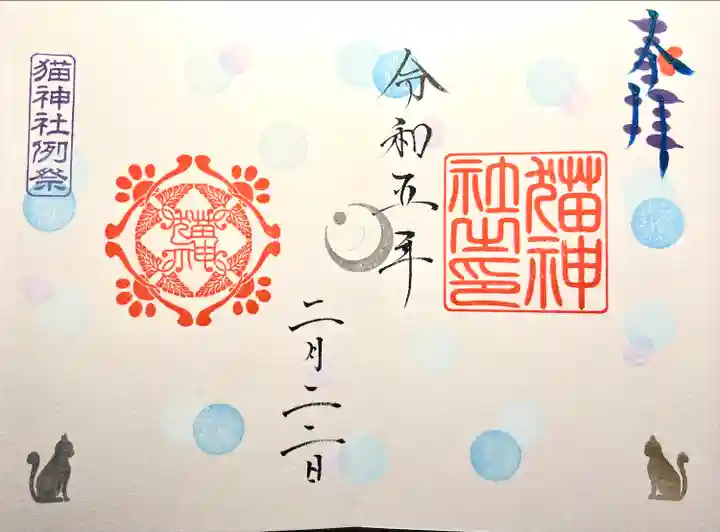 奉拝
猫神
社之印
令和五年
二月二二日
猫神
猫神社例祭